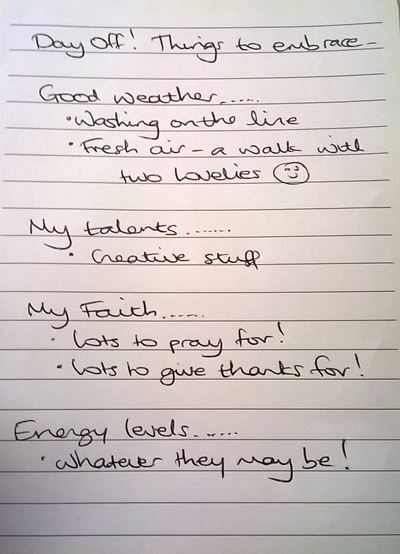 Day Off! Things to embrace-
Good weather......
• Washing on the line
• Fresh air - a walk with
two lovelies
My talents.......
• Creative stuff
My Faith......
• Lots to pray for!
• Lots to give thanks for!
Energy levels......
• whatever they may be!